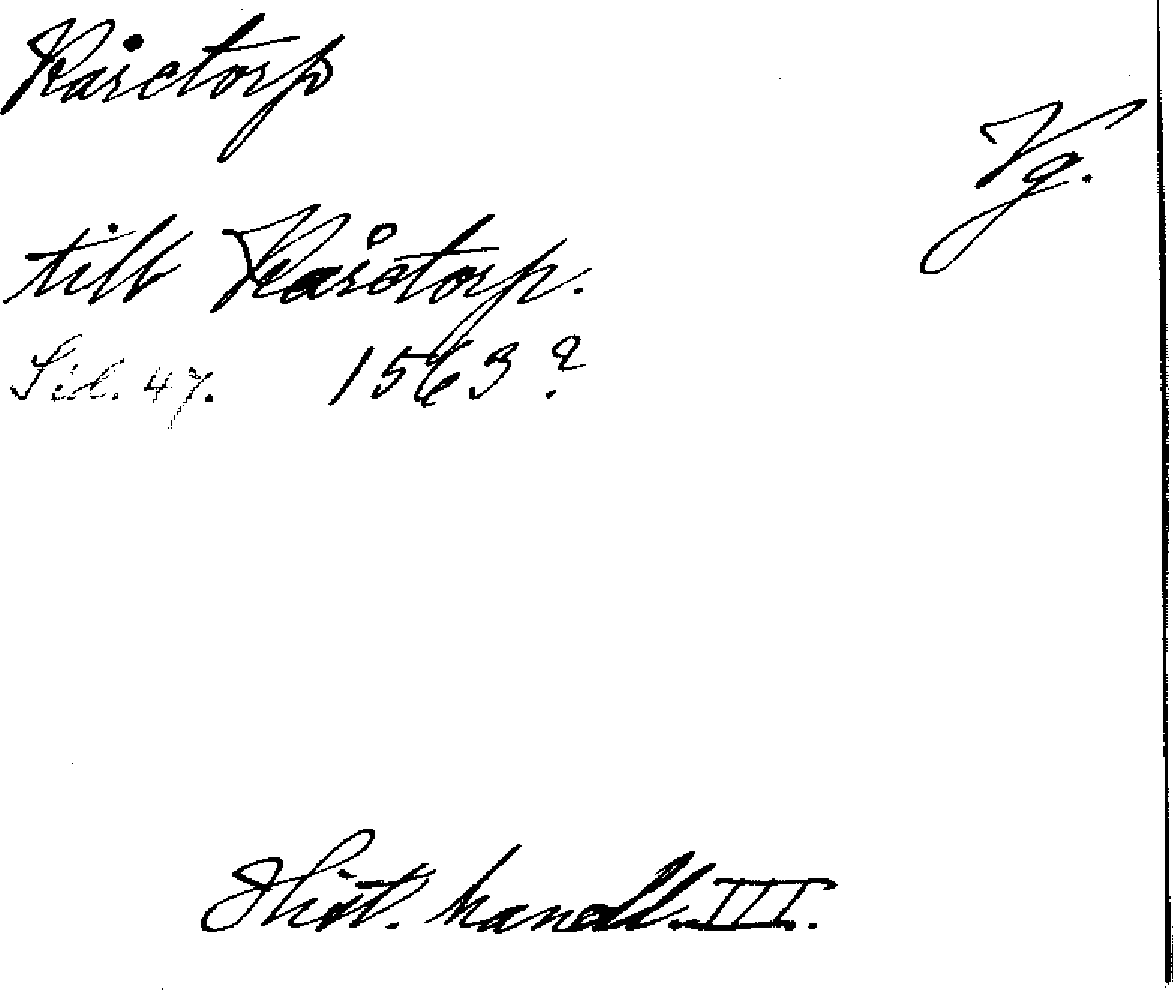 Kåretorp
Vg.
till Kåretorp.
Sid. 47. 1563?
Hist. handl. III.